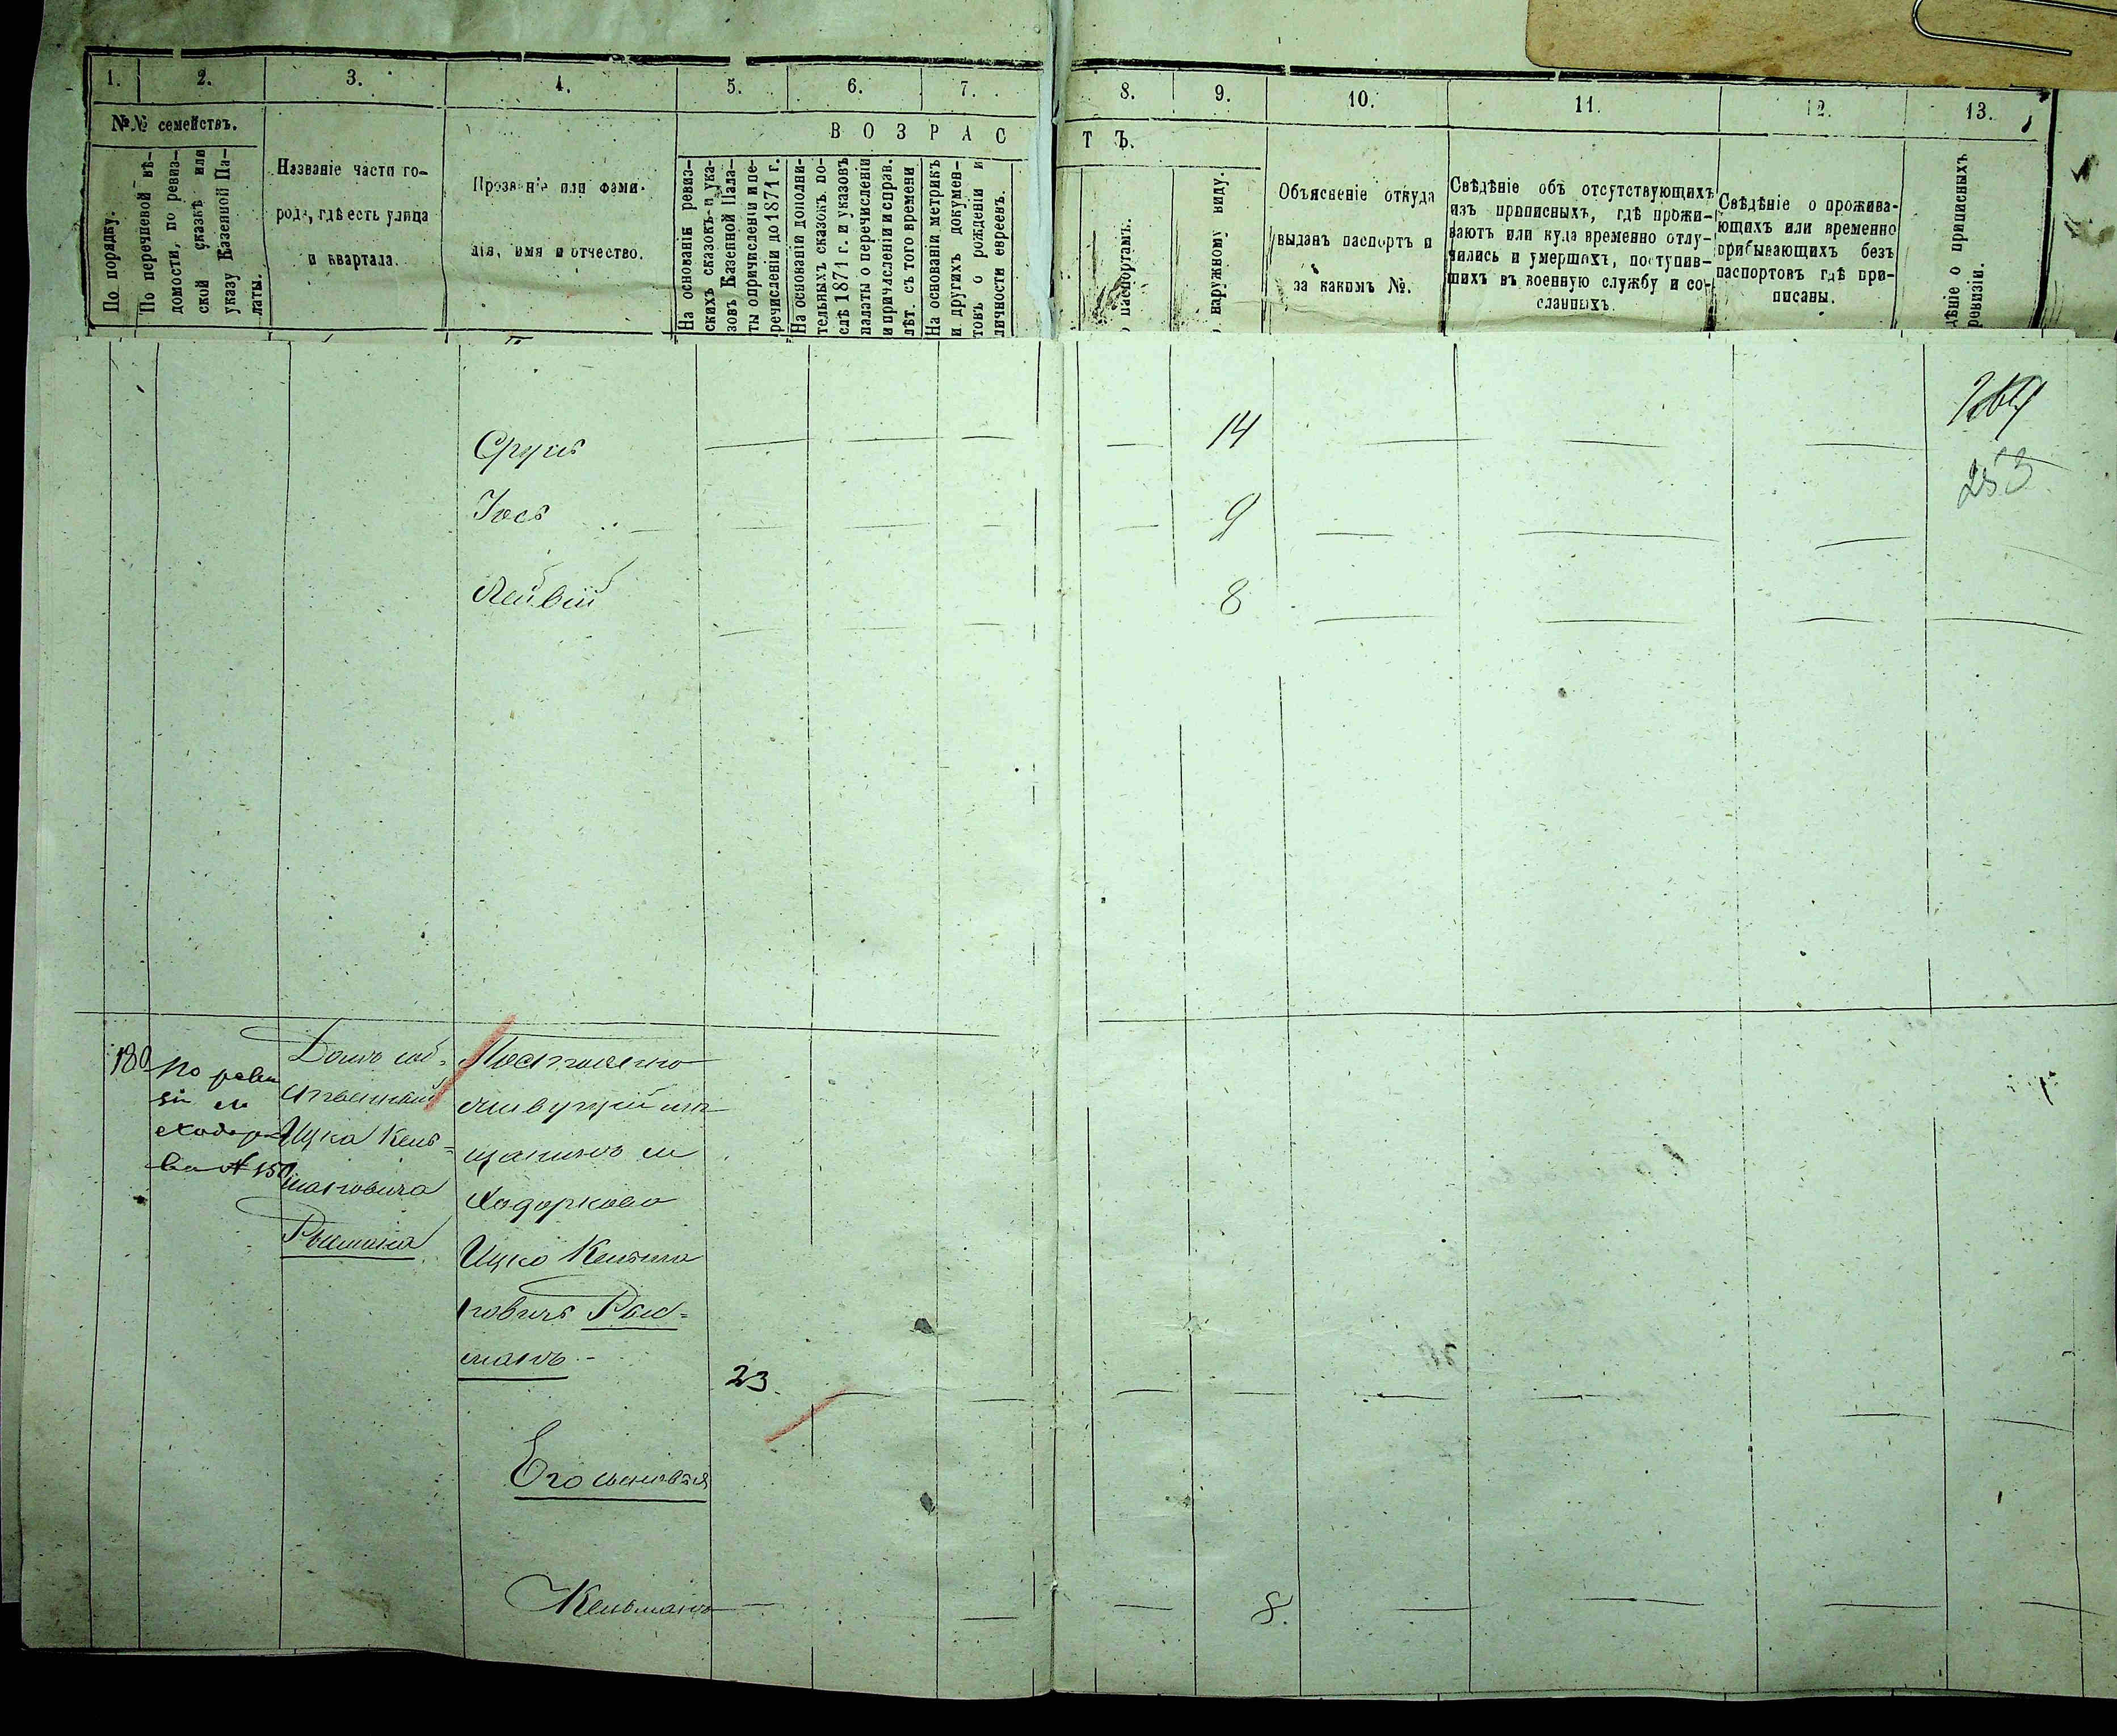 1. 2. 3. 4. 5. 6. 7. 8. 9. 10. 11. 12. 13.
№№ семействъ.
В О З Р А С Т Ъ.
По порядку.
По перечневой вѣ-
домости, по ревиз-
ской сказкѣ или
указу Казенной Па-
латы.
Названіе части го-
рода, гдѣ есть улица
и квартала.
Прозваніе или фами-
лія, имя и отчество.
На основаніи ревиз-
скихъ сказокъ и ука-
зовъ Казенной Пала-
ты о причисленіи и пе-
речисленіи до 1871 г.
На основаніи дополни-
тельныхъ сказокъ по-
слѣ 1871 г. и указовъ
палаты о перечисленіи
и причисленіи и справ.
лѣт. съ того времени
На основаніи метрикъ
и другихъ докумен-
товъ о рожденіи и
личности евреевъ.
паспортамъ.
наружному виду.
Объясненіе откуда
выданъ паспортъ и
за какимъ №.
Свѣдѣніе объ отсутствующихъ
изъ приписныхъ, гдѣ прожи-
ваютъ или куда временно отлу-
чились и умершихъ, поступив-
шихъ въ военную службу и со-
сланныхъ.
Свѣдѣніе о прожива-
ющихъ или временно
прибывающихъ безъ
паспортовъ гдѣ при-
писаны.
дѣніе о приписныхъ
ревизіи.
253
Сруль 14
Іось 9
Лейвій 8
180
По реви
зіи м
Ходорко
ва № 150
Домъ соб-
ственный
Ицка Кель-
мановича
Рысмана
Постоянно
живущій мѣ
щанинъ м
Ходоркова
Ицко Кельма
новичъ Рыс-
манъ 23
Его сыновья
Кельманъ 8.